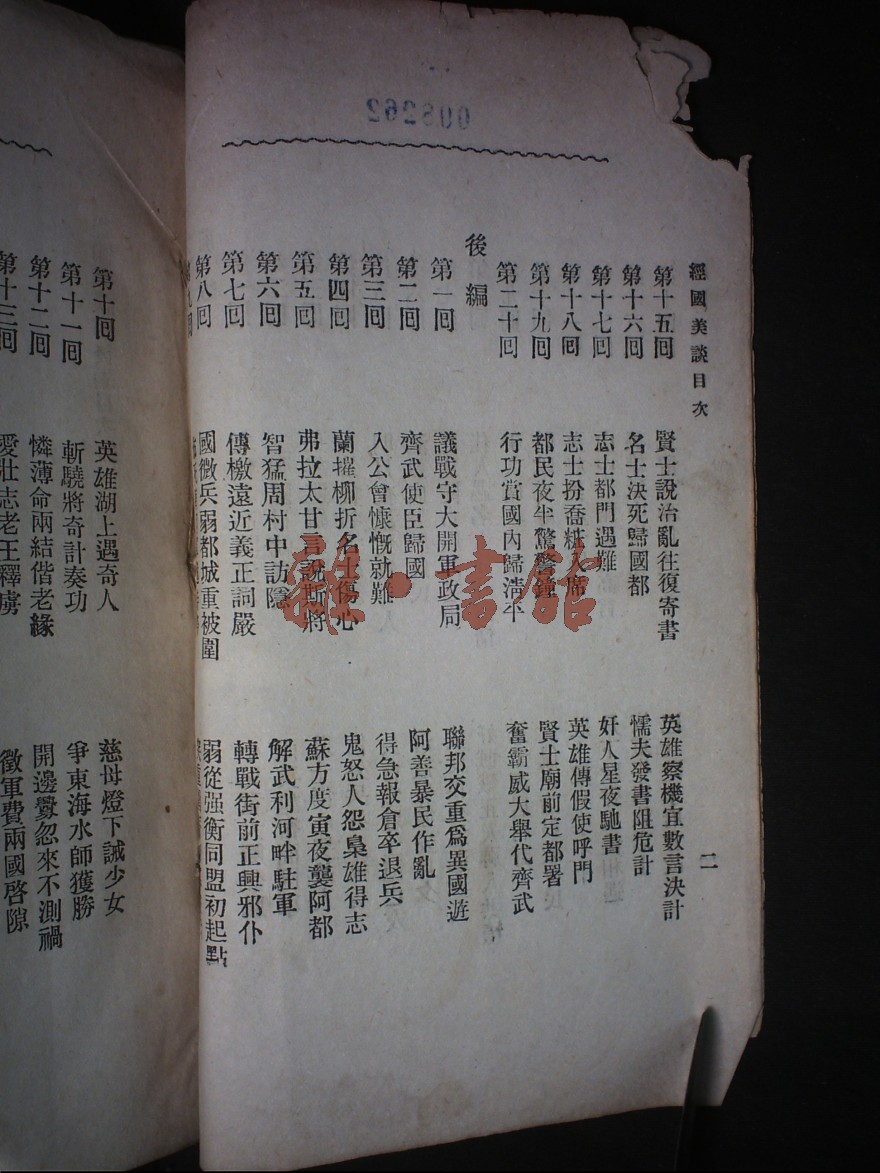 經國美談目次
二
第十五回 賢士說治亂往復寄書 英雄察機宜數言決計
第十六回 名士決死歸國都 懦夫發書阻危計
第十七回 志士都門遇難 奸人星夜馳書
第十八回 志士扮喬粧入席 英雄傳假使呼門
第十九回 都民夜半驚警鐘 賢士廟前定都署
第二十回 行功賞國內歸淸平 奮霸威大舉代齊武
後編
第一回 議戰守大開軍政局 聯邦交重爲異國遊
第二回 齊武使臣歸國 阿善暴民作亂
第三回 入公會慷慨就難 得急報倉卒退兵
第四回 蘭摧柳折名士傷心 鬼怒人怨梟雄得志
第五回 弗拉太甘言說斯將 蘇方度寅夜襲阿都
第六回 智猛周村中訪隱 解武利河畔駐軍
第七回 傳檄遠近義正詞嚴 轉戰街前正興邪仆
第八回 國微兵弱都城重被圍 弱從强衡同盟初起點
第十回 英雄湖上遇奇人 慈母燈下誡少女
第十一回 斬驍將奇計奏功 爭東海水師獲勝
第十二回 憐薄命兩結偕老緣 開邊釁忽來不測禍
第十三回 愛壯志老王釋虜 徵軍費兩國啓隙
008262
雜·書館